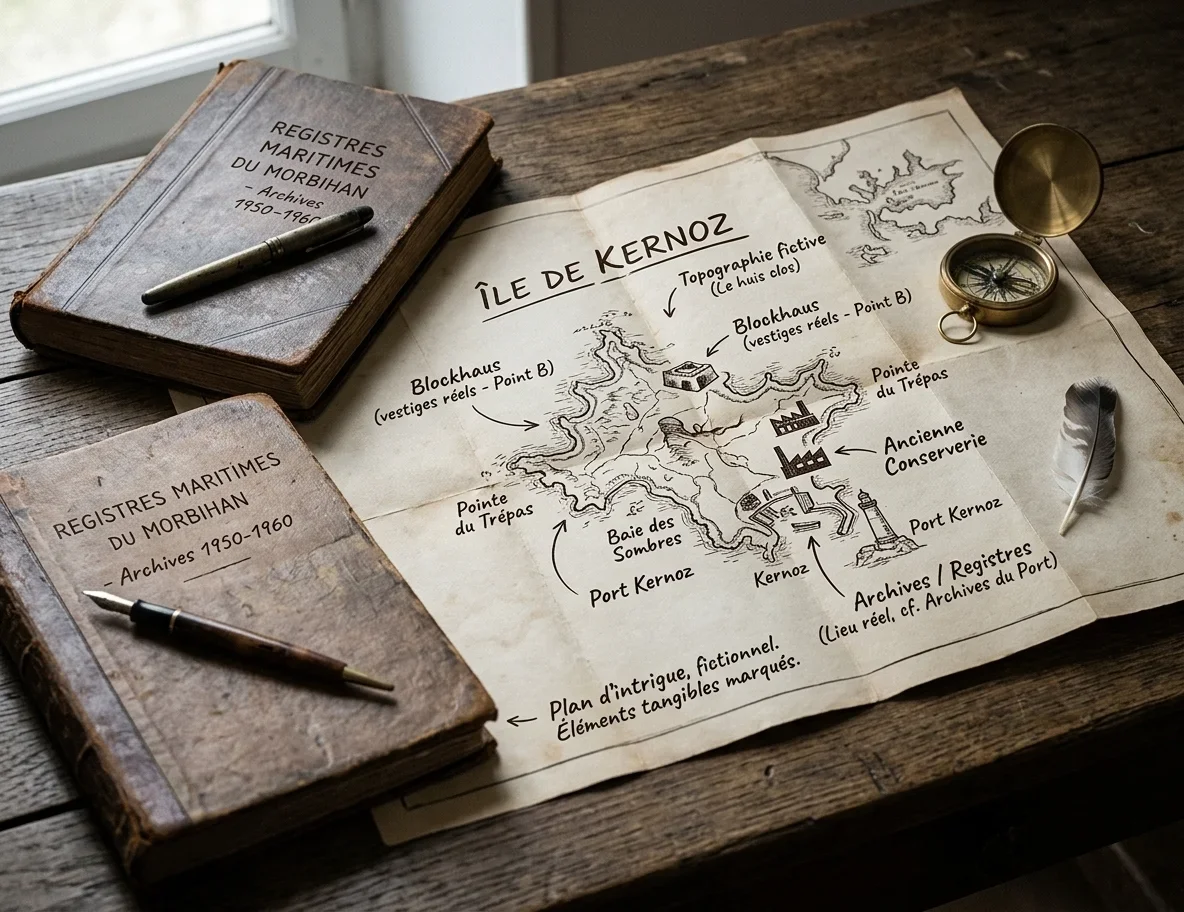 REGISTRES
MARITIMES
DU MORBIHAN
- Archives
1950-1960
REGISTRES MARITIMES
DU MORBIHAN
- Archives 1950-1960
ÎLE DE KERNOZ
Topographie fictive
(Le huis clos)
Blockhaus
(vestiges réels - Point B)
Blockhaus
(vestiges réels - Point B)
Pointe
du Trépas
Ancienne
Conserverie
Pointe
du Trépas
Baie des
Sombres
Port Kernoz
Kernoz
Port Kernoz
Archives / Registres
(Lieu réel, cf. Archives du Port)
Plan d'intrigue, fictionnel.
Éléments tangibles marqués.